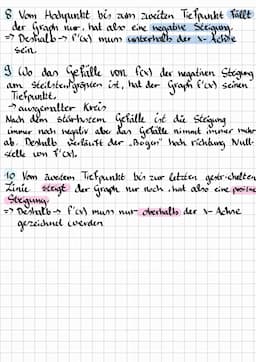 8 Vom Hochpunkt bis zum zweiten Tiefpunkt fällt
der Graph nur, hat also eine negative Steigung.
=> Deshalb -> f'(x) muss unterhalb der x-Achse
sein.
9 Wo das Gefälle von f(x) der negativen Steigung
am steilsten/größten ist, hat der Graph f'(x) seinen
Tiefpunkt.
-> ausgemalter Kreis
Nach dem stärksten Gefälle ist die Steigung
immer noch negativ aber das Gefälle nimmt immer mehr
ab. Deshalb verläuft der "Bogen" hoch richtung Null-
stelle von f'(x).
10 Vom zweitem Tiefpunkt bis zur letzten gestrichelten
Linie steigt der Graph nur noch, hat also eine positive
Steigung.
=> Deshalb -> f'(x) muss nur oberhalb der x-Achse
gezeichnet werden